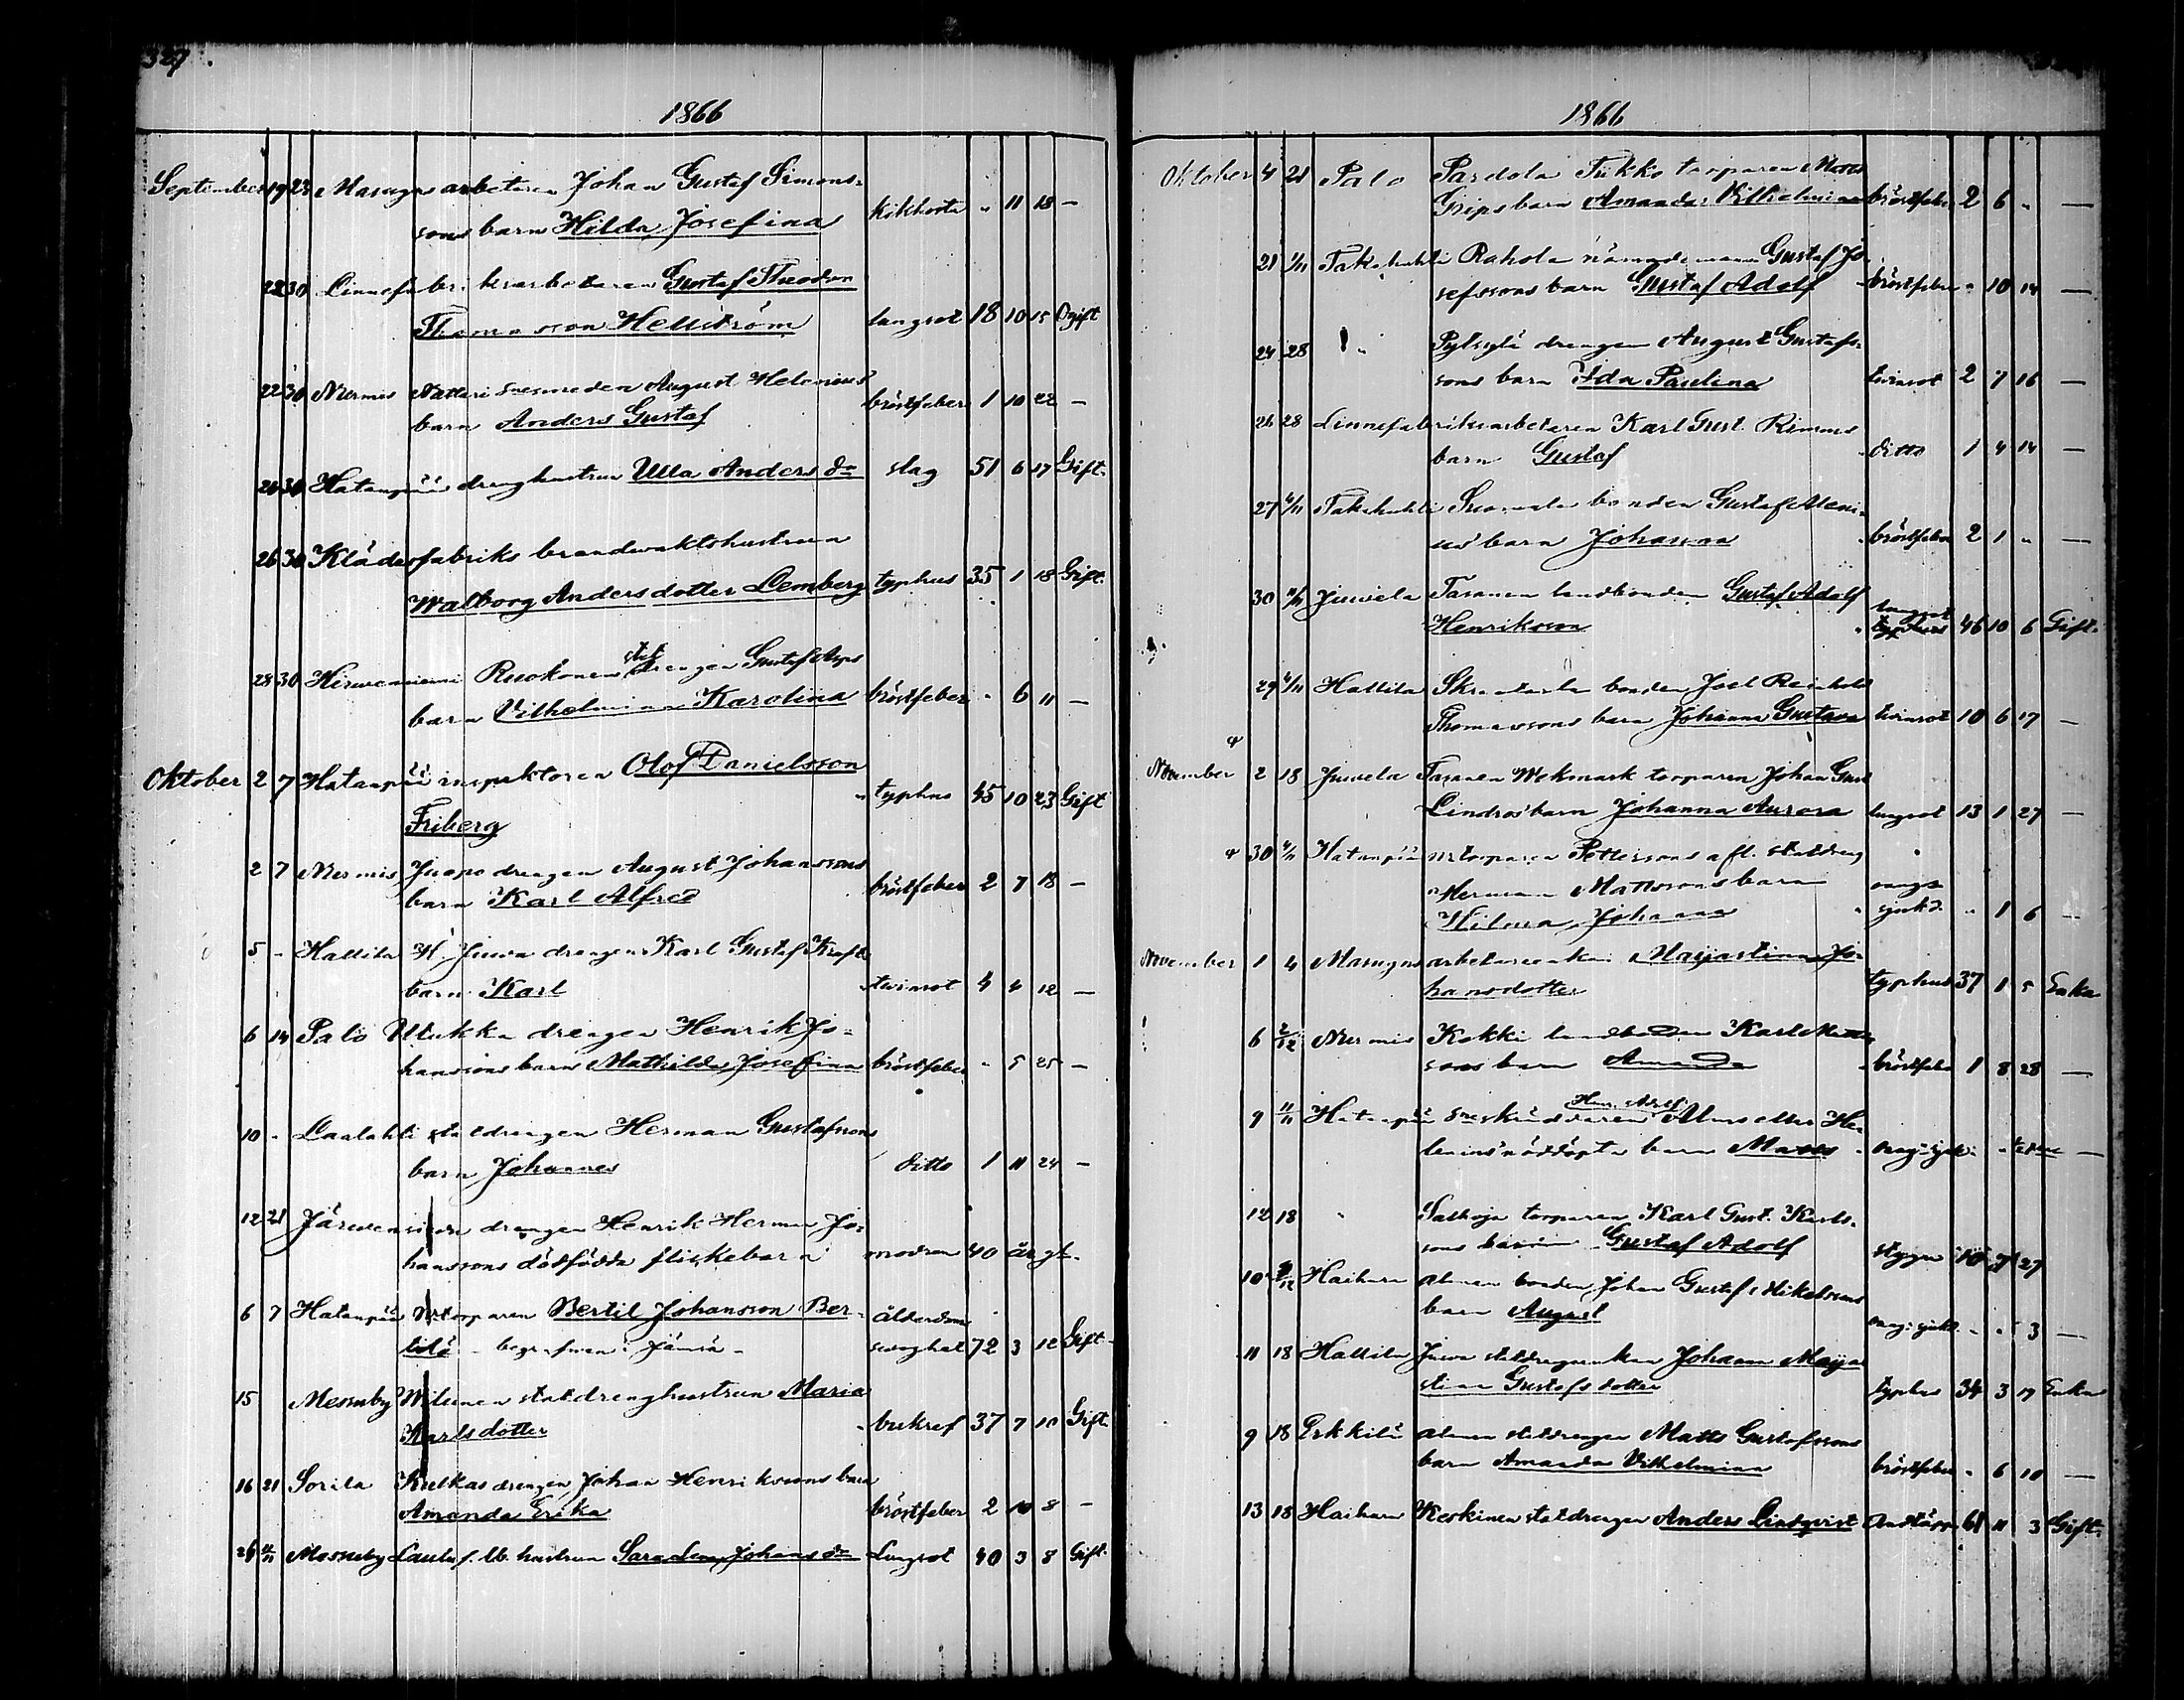 327.
1866
September 19 23 Masugns arbetaren Johan Gustaf Simons-
sons barn Hilda Josefina kikhosta " 11 18 —
22 30 Linnefabriksarbetaren Gustaf Theodor
Thomasson Hellström lungsot 18 10 15 Ogift
22 30 Nurmis Nattari snesmeden August Helenius
barn Anders Gustaf bröstfeber 1 10 22 —
26 30 Hatanpää drenghustrun Ulla Anders dr slag 51 6 17 Gift.
26 30 Klädesfabriks brandwaktshustrun
Walborg Andersdotter Lemberg typhus 35 1 18 Gift.
stat
28 30 Hirweniemi Ruokonen drengen Gustaf Asps
barn Vilhelmina Karolina bröstfeber " 6 11 —
Oktober 2 7 Hatanpää inspektoren Olof Danielsson
Friberg typhus 45 10 23 Gift
2 7 Nurmis Juopo drengen August Johanssons
barn Karl Alfred bröstfeber 2 7 18 —
5 " Hallila H. Juwa drengen Karl Gustaf Krafts
barn Karl twinsot 4 4 12 —
6 14 Palo Uukka drengen Henrik Jo-
hanssons barn Mathilda Josefina bröstfeber " 5 25 —
10 " Laalahti statdrengen Herman Gustafssons
barn Johannes ditto 1 11 24 —
12 21 Järwensivu drengen Henrik Herman Jo-
hanssons dödfödda flickebarn modren 40 år gl.
6 7 Hatanpää torparen Bertil Johansson Ber- ålderdom
tilä - begrafwen i Jämsä - swaghet 72 3 12 Gift
15 Messuby Wilunen statdrenghustrun Maria
Karlsdotter bukref 37 7 10 Gift
16 21 Sorila Kulkas drengen Johan Henrikssons barn
Amanda Erika bröstfeber 2 10 8 —
26 4/11 Messuby hustrun Sara Lena Johans dr Lungsot 40 3 8 Gift.
1866
Oktober 4 21 Palo Pardola Tukko torparen Matts
Grips barn Amanda Vilhelmina bröstfeber 2 6 " —
21 1/11 Takahuhti Rahola nämndemannen Gustaf Jo-
sefssons barn Gustaf Adolf bröstfeber " 10 14 —
24 28 " drengen August Gustafs-
sons barn Ida Paulina twinsot 2 7 16 —
26 28 Linnefabriksarbetaren Karl Gust.
barn Gustaf ditto 1 4 14 —
27 4/11 Takahuhti bonden Gustaf
barn Johanna bröstfeber 2 1 " —
30 4/11 Juwela Tasanen landbonden Gustaf Adolf lungsot
Henriksson 46 10 6 Gift.
29 4/11 Hallila bonden Joel Reinhold
Thomassons barn Johanna Gustava twinsot 10 6 17 —
November 2 18 Juwela Tasanen Wekmark torparen Johan Gust
Lindros' barn Johanna Aurora lungsot 13 1 27 —
30 4/11 Hatanpää torparen Petterssons afl. statdreng
Herman Mattssons barn
Hilma Johanna sjukd. " 1 6 —
November 1 4 Masugns arbetareenkan Majastina Jo-
hansdotter typhus 37 1 5 Enka
6 2/12 Nurmis Kokki landbonden Karl Matts-
sons barn Amanda bröstfeber 1 8 28 —
Henr. Adolf
9 11/11 Hatanpää eller He-
lenius' nöddöpta barn Matts —
12 18 " Salhoja torparen Karl Gust. Karls-
sons barn Gustaf Adolf styng 10 7 27
10 2/12 Haihara alanen bonden Johan Gustaf Mikelssons
barn August " " 3 —
11 18 Hallila Juwa statdrengenkan Johanna Maja
stina Gustafs dotter typhus 34 3 17 Enka
9 18 Erkkilä alanen statdrengen Matts Gustafssons
barn Amanda Vilhelmina bröstfeber " 6 10 —
13 18 Haihara Keskinen statdrengen Anders Lindqvist 61 11 3 Gift.